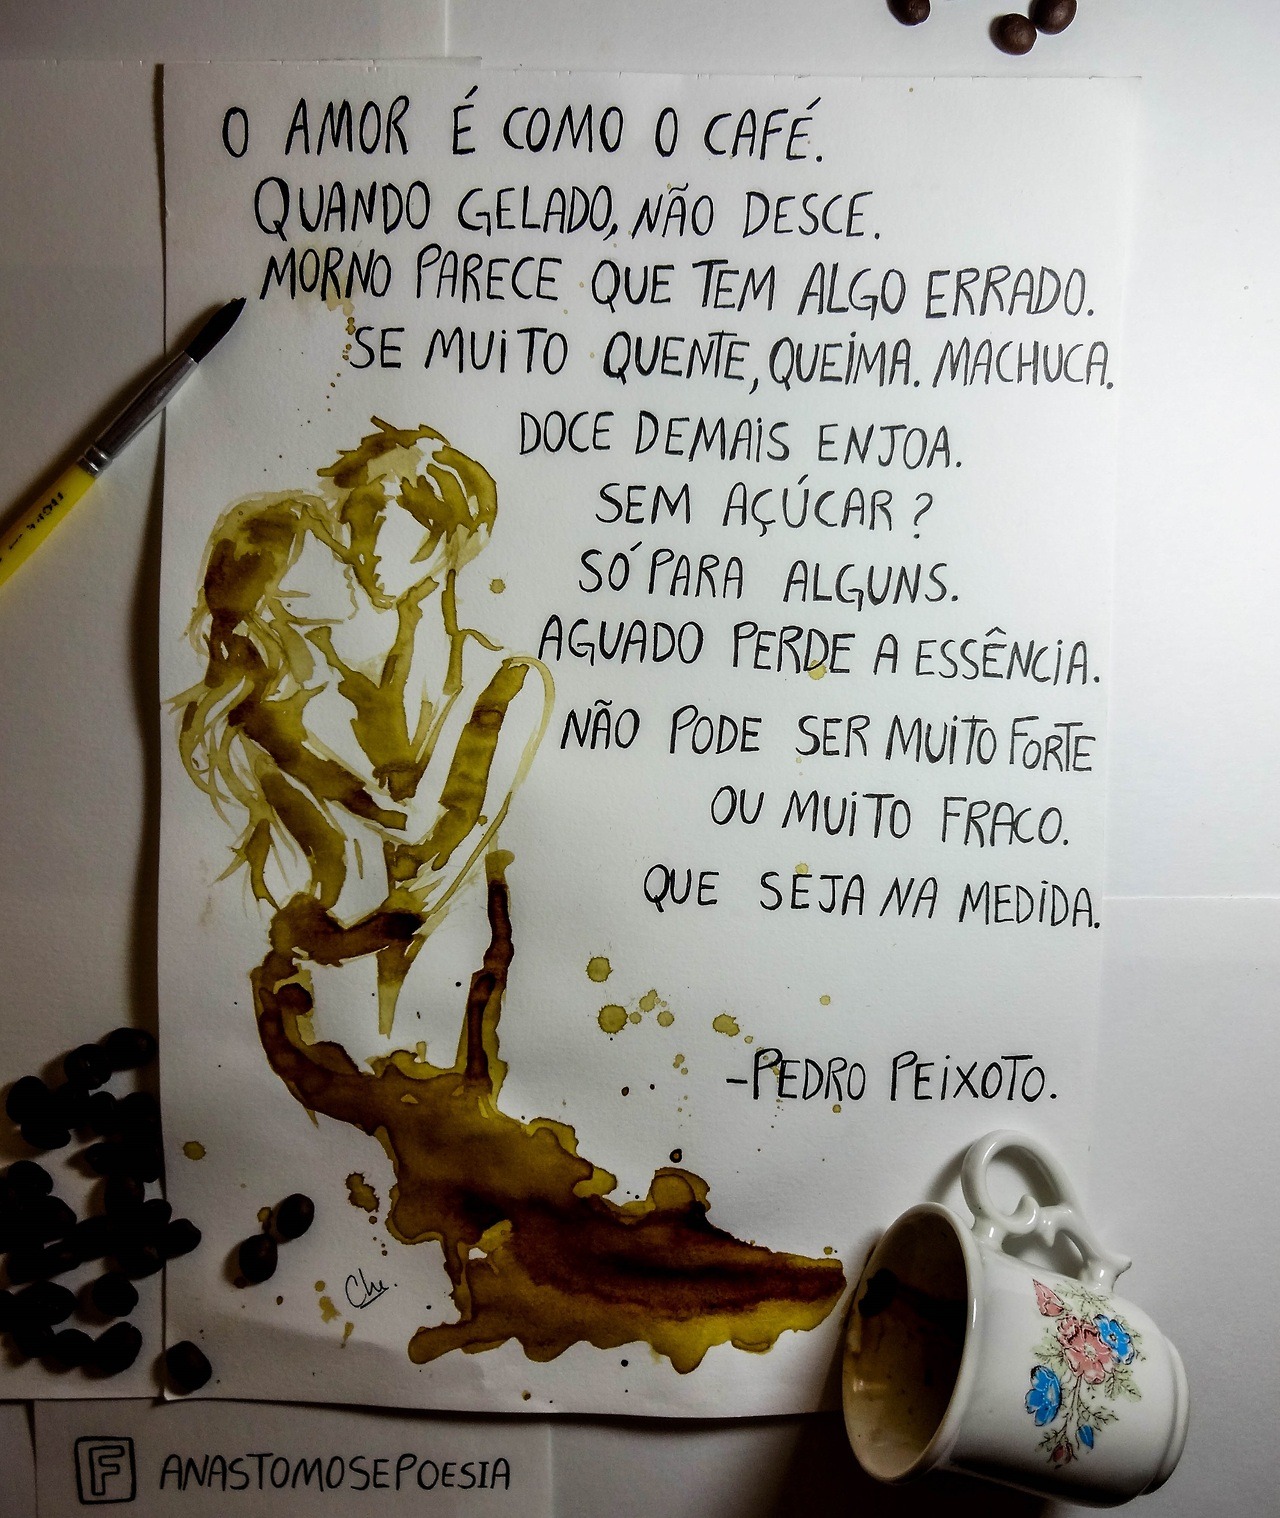 O AMOR É COMO O CAFÉ.
QUANDO GELADO, NÃO DESCE.
MORNO PARECE QUE TEM ALGO ERRADO.
SE MUiTO QUENTE, QUEiMA. MACHUCA.
DOCE DEMAiS ENJOA.
SEM AÇÚCAR?
SÓ PARA ALGUNS.
AGUADO PERDE A ESSÊNCiA.
NÃO PODE SER MUiTO FORTE
OU MUiTO FRACO.
QUE SEJA NA MEDiDA.
-PEDRO PEiXOTO.
F ANASTOMOSEPOESIA